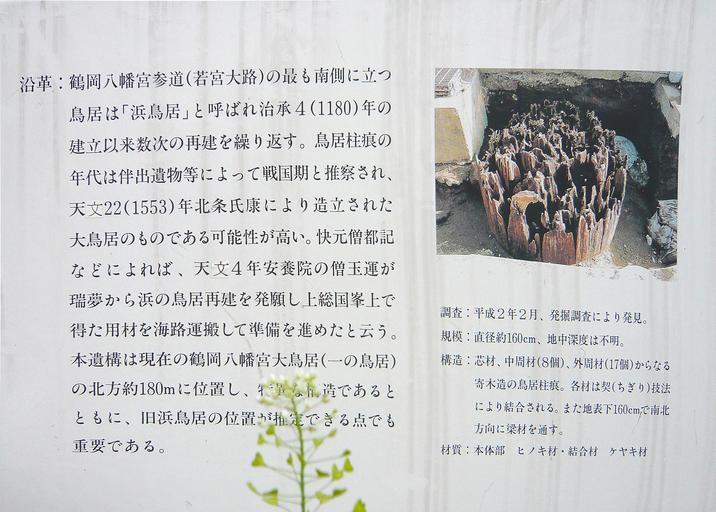 沿革：鶴岡八幡宮参道(若宮大路)の最も南側に立つ
鳥居は「浜鳥居」と呼ばれ治承4(1180)年の
建立以来数次の再建を繰り返す。鳥居柱痕の
年代は伴出遺物等によって戦国期と推察され、
天文22(1553)年北条氏康により造立された
大鳥居のものである可能性が高い。快元僧都記
などによれば、天文4年安養院の僧玉運が
瑞夢から浜の鳥居再建を発願し上総国峯上で
得た用材を海路運搬して準備を進めたと云う。
本遺構は現在の鶴岡八幡宮大鳥居(一の鳥居)
の北方約180mに位置し、特異な構造であると
ともに、旧浜鳥居の位置が推定できる点でも
重要である。
調査：平成2年2月、発掘調査により発見。
規模：直径約160cm、地中深度は不明。
構造：芯材、中周材(8個)、外周材(17個)からなる
寄木造の鳥居柱痕。各材は契(ちぎり)技法
により結合される。また地表下160cmで南北
方向に梁材を通す。
材質：本体部 ヒノキ材・結合材 ケヤキ材